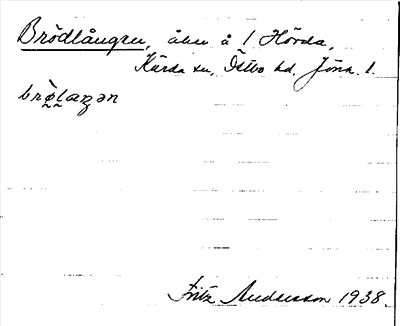 Brödlången, åker å 1 Hörda,
Kärda sn, Östbo hd. Jönk. l.
brö̀laŋən
Fritz Andersson 1938.